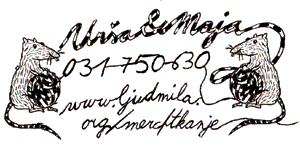 Urša & Maja
031-750-630
www.ljudmila.
org/mercftkanje